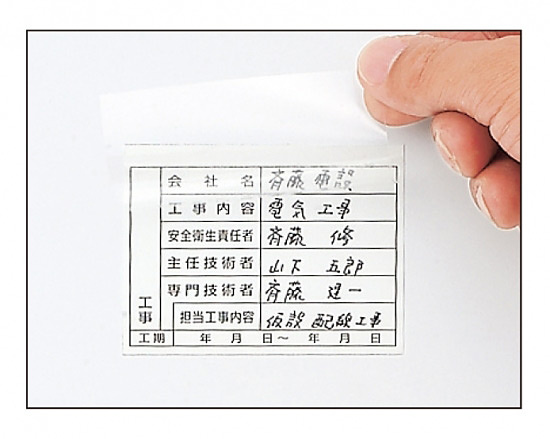 会社名 斉藤電設
工事内容 電気工事
安全衛生責任者 斉藤 修
主任技術者 山下 五郎
専門技術者 斉藤 建一
工事 担当工事内容 仮設配線工事
工期 年 月 日〜 年 月 日